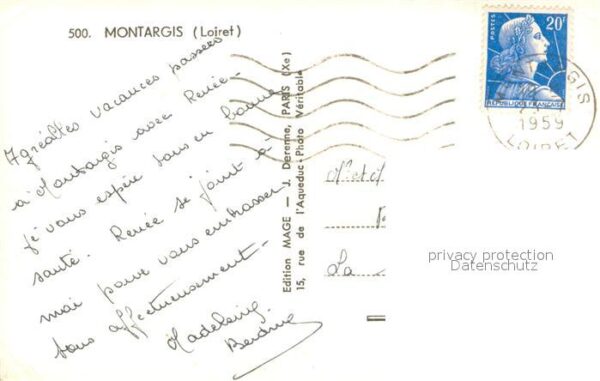 500. MONTARGIS (Loiret)
Agréables vacances passées
à Montargis avec Renée -
je vous espère tous en bonne
santé. Renée se joint à
moi pour vous embrasser
tous affectueusement -
Madeleine
Edition MAGE — J. Derenne, PARIS (Xe)
15, rue de l'Aqueduc - Photo Véritable
POSTES 20F
REPUBLIQUE FRANÇAISE
1959
LOIRET
privacy protection
Datenschutz